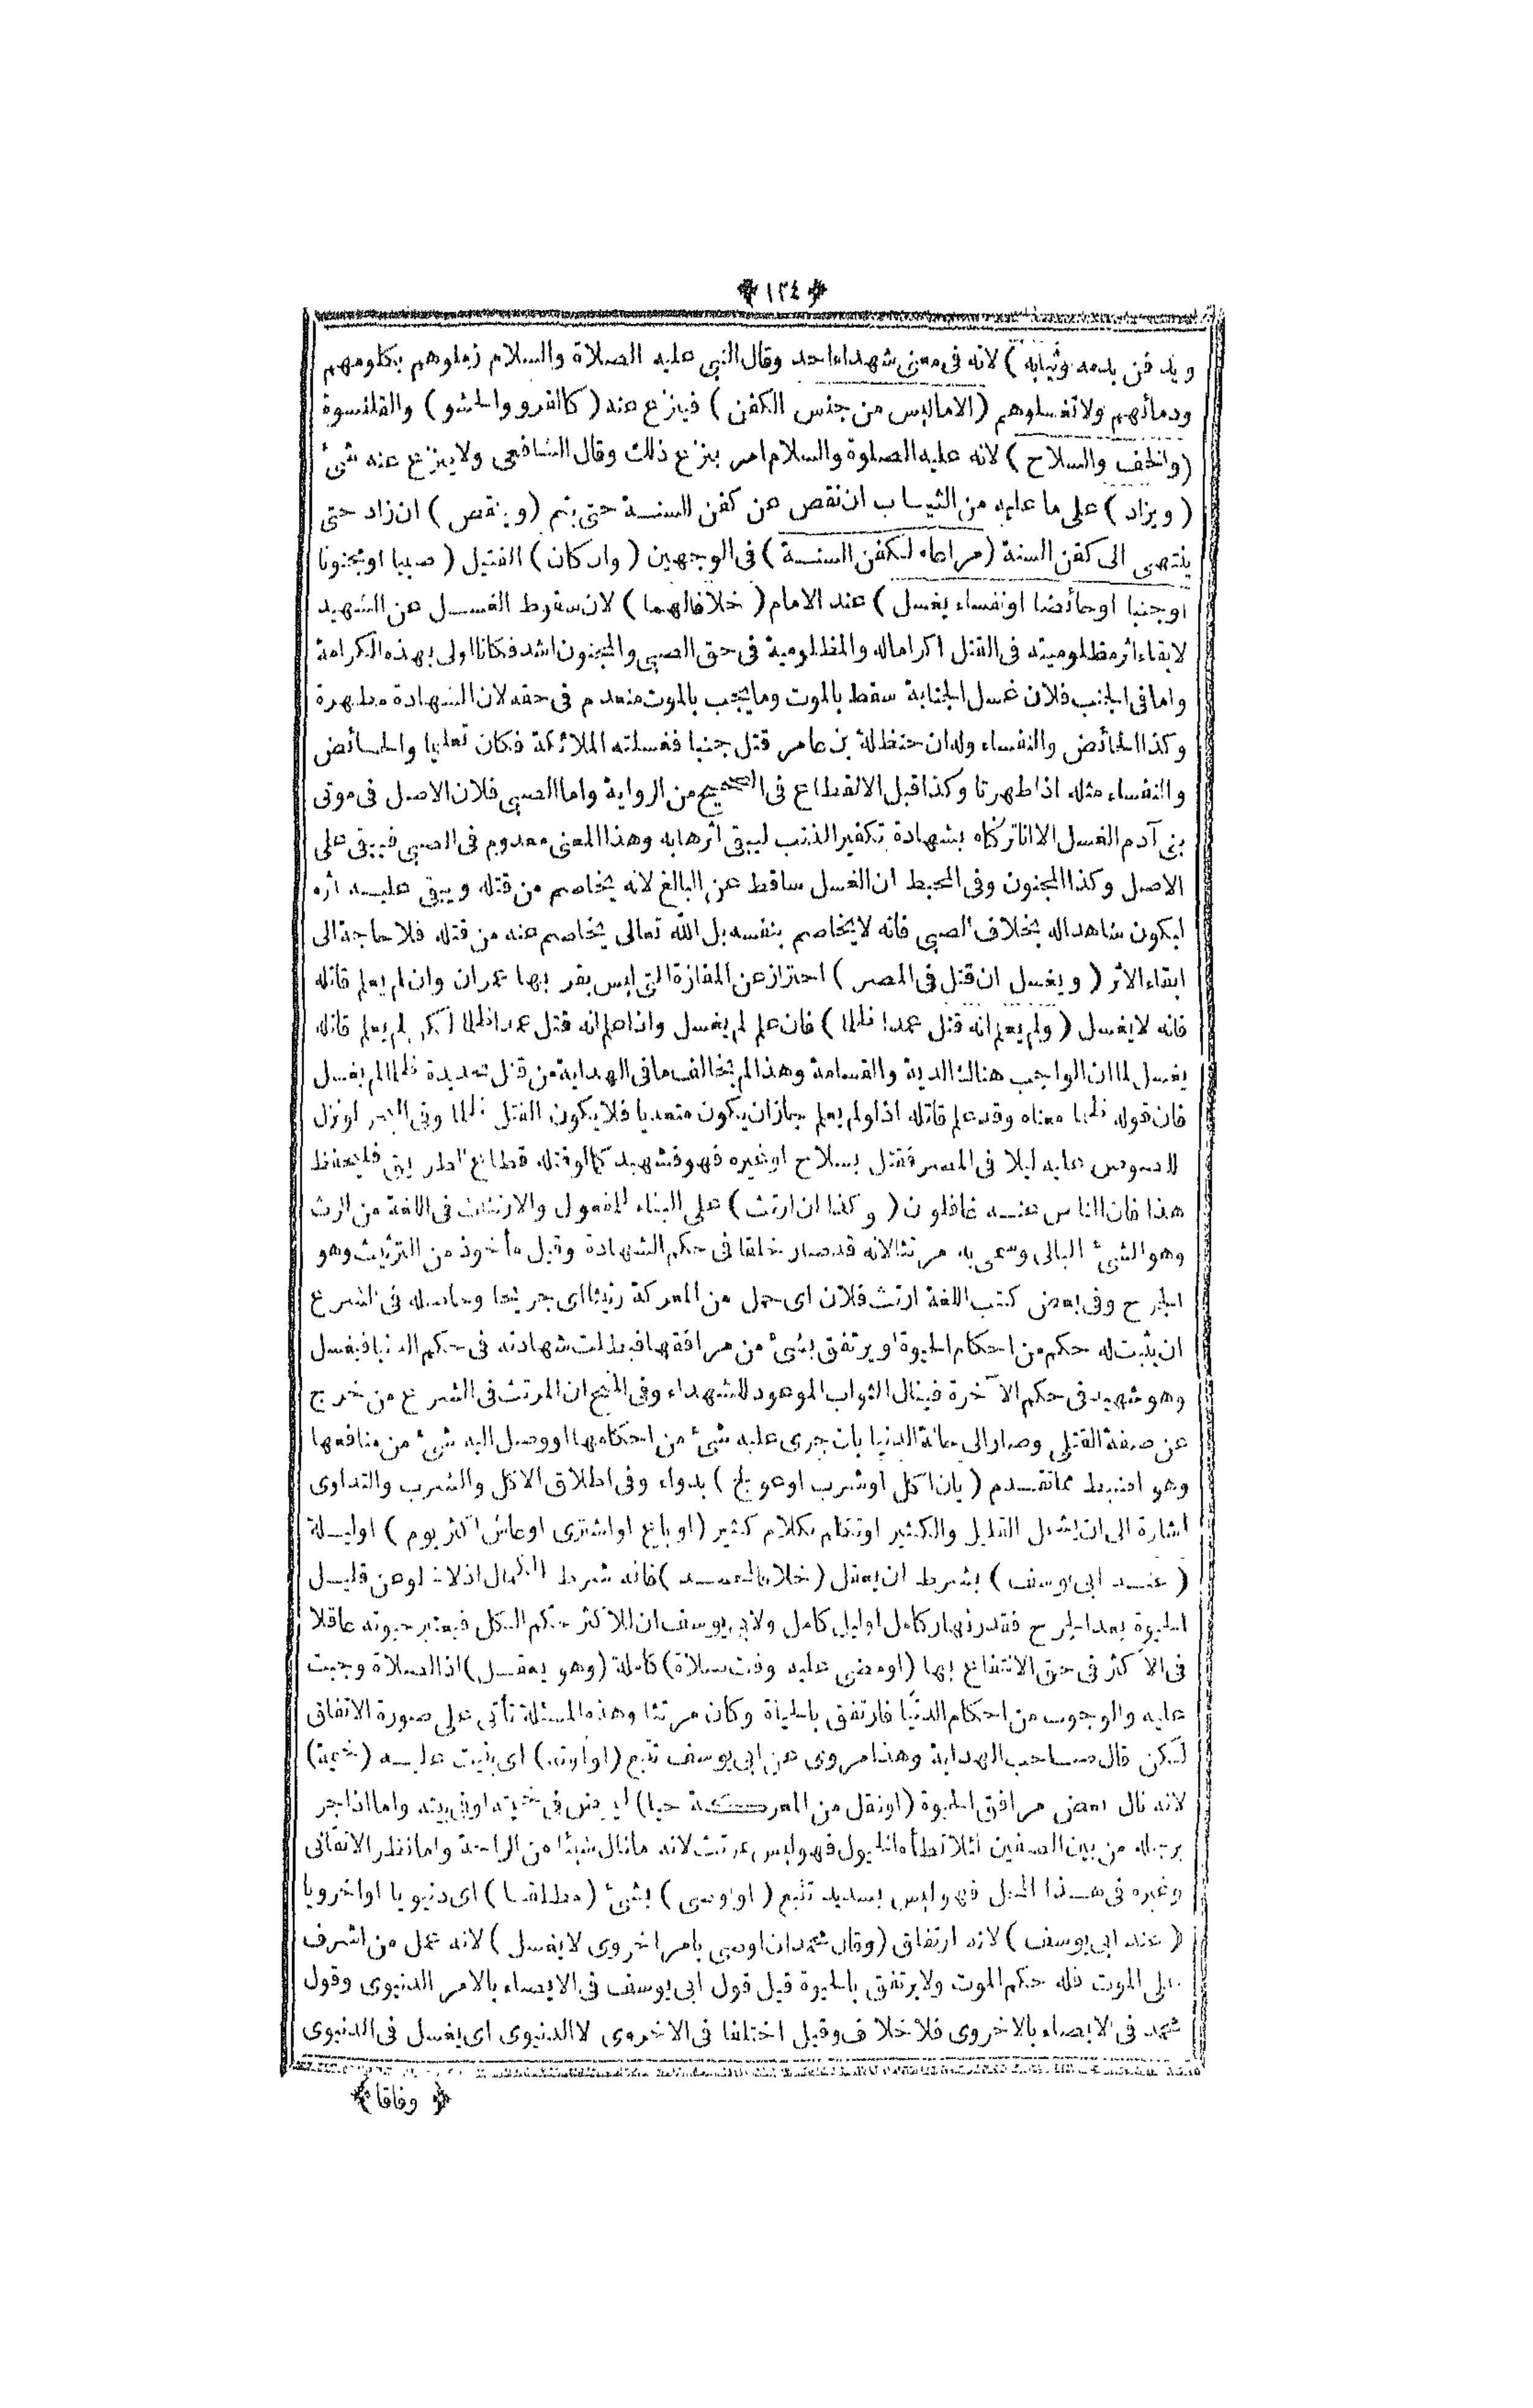 ﴿ ١٣٤ ﴾
ويدفن بدمه وثيابه ) لانه فى معنى شهداء احد وقال النبى عليه الصلاة والسلام زملوهم بكلومهم
ودمائهم ولا تغسلوهم ( الا ما ليس من جنس الكفن ) فينزع عنه ( كالفرو والحشو ) والقلنسوة
( والخف والسلاح ) لانه عليه الصلوة والسلام امر بنزع ذلك وقال الشافعى ولا ينزع عنه شئ
( ويزاد ) على ما عليه من الثياب ان نقص عن كفن السنة حتى يتم ( وينقص ) ان زاد حتى
ينتهى الى كفن السنة ( مراعاه لكفن السنة ) فى الوجهين ( وان كان ) القتيل ( صبيا او مجنونا
او جنبا او حائضا او نفساء يغسل ) عند الامام ( خلافا لهما ) لان سقوط الغسل عن الشهيد
لابقاء اثر مظلوميته فى القتل اكراما له والمظلومية فى حق الصبى والمجنون اشد فكانا اولى بهذه الكرامة
واما فى الجنب فلان غسل الجنابة سقط بالموت وما يجب بالموت منعدم فى حقه لان الشهادة مطهرة
وكذا الحائض والنفساء وله ان حنظلة بن عامر قتل جنبا فغسلته الملائكة فكان تعليما والحائض
والنفساء مثله اذا طهرتا وكذا قبل الانقطاع فى الصحيح من الرواية واما الصبى فلان الاصل فى موتى
بنى آدم الغسل الا انا تركناه بشهادة تكفير الذنب ليبقى اثرها به وهذا المعنى معدوم فى الصبى فيبقى على
الاصل وكذا المجنون وفى المحيط ان الغسل ساقط عن البالغ لانه يخاصم من قتله ويبقى عليه اثره
ليكون شاهدا له بخلاف الصبى فانه لا يخاصم بنفسه بل الله تعالى يخاصم عنه من قتله فلا حاجة الى
ابقاء الاثر ( ويغسل ان قتل فى المصر ) احتراز عن المفازة التى ليس بقربها عمران وان لم يعلم قاتله
فانه لا يغسل ( ولم يعلم انه قتل عمدا ظلما ) فان علم لم يغسل واذا علم انه قتل عمدا ظلما لكن لم يعلم قاتله
يغسل لما ان الواجب هناك الدية والقسامة وهذا لم يخالف ما فى الهداية من قتل بحديدة ظلما لم يغسل
فان قوله ظلما معناه وقد علم قاتله اذ لو لم يعلم جاز ان يكون متعديا فلا يكون القتل ظلما وفى البحر لو نزل
اللصوص عليه ليلا فى المصر فقتل بسلاح او غيره فهو شهيد كما لو قتله قطاع الطريق فليحفظ
هذا فان الناس عنه غافلون ( وكذا ان ارتث ) على البناء للمفعول والارتثاث فى اللغة من الرث
وهو الشئ البالى وسمى به مرتثا لانه قد صار خلقا فى حكم الشهادة وقيل مأخوذ من الترثيث وهو
الجرح وفى بعض كتب اللغة ارتث فلان اى حمل من المعركة رثيثا اى جريحا وحاصله فى الشرع
ان يثبت له حكم من احكام الحيوة او يرتفق بشئ من مرافقها فبطلت شهادته فى حكم الدنيا فيغسل
وهو شهيد فى حكم الآخرة فينال الثواب الموعود للشهداء وفى الفتح ان المرتث فى الشرع من خرج
عن صفة القتلى وصار الى حالة الدنيا بان جرى عليه شئ من احكامها او وصل اليه شئ من منافعها
وهو اضبط مما تقدم ( بان اكل او شرب او عولج ) بدواء وفى اطلاق الاكل والشرب والتداوى
اشارة الى ان يشمل القليل والكثير او تكلم بكلام كثير ( او باع او اشترى او عاش اكثر يوم ) او ليلة
( عند ابى يوسف ) بشرط ان يعقل ( خلافا لمحمد ) فانه شرط الكمال اذ لا لو عن قليل
الحيوة بعد الجرح فقدر نهار كامل او ليل كامل ولابى يوسف ان للاكثر حكم الكل فيعتبر حيوته عاقلا
فى الاكثر فى حق الانتفاع بها ( او مضى عليه وقت صلاة ) كاملة ( وهو يعقل ) اذ الصلاة وجبت
عليه والوجوب من احكام الدنيا فارتفق بالحياة وكان مرتثا وهذه المسئلة تأتى على صورة الاتفاق
لكن قال صاحب الهداية وهذا مروى عن ابى يوسف تتبع ( او اوته ) اى بنيت عليه ( خيمة )
لانه نال بعض مرافق الحيوة ( او نقل من المعركة حيا ) ليمرض فى خيمته او فى بيته واما اذا جر
برجله من بين الصفين لئلا تطأه الخيول فهو ليس بمرتث لانه ما نال شيئا من الراحة واما نظر الاتقانى
وغيره فى هذا المحل فهو ليس بسديد تتبع ( او اوصى ) بشئ ( مطلقا ) اى دنيويا او اخرويا
( عند ابى يوسف ) لانه ارتفاق ( وقال محمد ان اوصى بامر اخروى لا يغسل ) لانه عمل من اشرف
على الموت فله حكم الموت ولا يرتفق بالحيوة قيل قول ابى يوسف فى الايصاء بالامر الدنيوى وقول
محمد فى الايصاء بالاخروى فلا خلاف وقيل اختلفا فى الاخروى لا الدنيوى اى يغسل فى الدنيوى
﴿ وفاقا ﴾